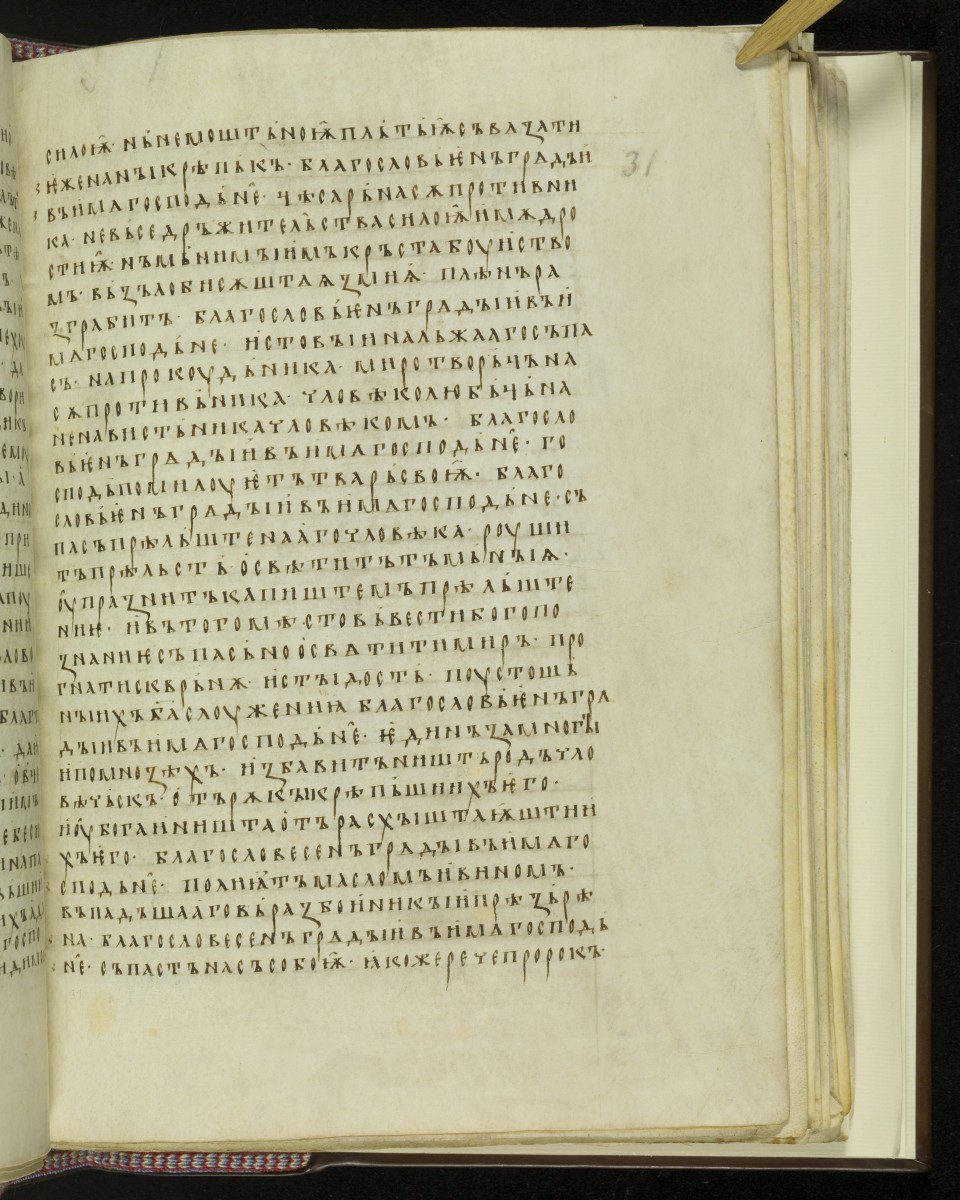 силоѭ· нь немоштьноѭ пльтьѭ съвѧзати
ѥже на ны крѣпъкъ· благословьѥнъ грѧдꙑи
въ имѧ господьне· чѣсарь на сѫпротивни
ка· не вьседръжительства силоѭ и мѫдро
стиѭ нъ мьнимꙑимъ крьста боуиство
мъ· въ зълобисѫштаѧ змиѧ· плѣнъ ра
зграбитъ· благословьѥнъ грѧдꙑи въ и
мѧ господьне· истовꙑи на лъжааго съпа
съ· на прокоудьника миротворьчь на
сѫпротивьника· чловѣколюбьчь на
ненавистьника чловѣкомъ· благосло
вьѥнъ грѧдꙑи въ имѧ господьне· го
сподь помилоуѥтъ тварь своѭ· благо
словьѥнъ грѧдꙑи въ имѧ господьне· съ
пасъ прѣльштенааго чловѣка· роуши
тъ прѣльсть· освѣтитъ тьмьнꙑѩ·
оупразнитъ капиштемъ прѣльште
ниѥ· и въ того мѣсто вьвести богопо
знаниѥ съпасьно освѧтити миръ· про
гнати скврънѫ· и стꙑдость· поустошь
нꙑихъ б҃а слоужениꙗ благословьѥнъ грѧ
дꙑи въ имѧ господьне· ѥдинъ за многꙑ
и помнозѣхъ· избавитъ ништь родъ чло
вѣчьскъ· отъ рѫкꙑ крѣпльшиихъ ѥго·
и оубога и ништа отъ расхꙑштаѭштии
хъ ѥго· благословесенъ грѧдꙑ въ имѧ го
сподьне· полиѩтъ масломь и виномъ·
въпадъшааго вь разбоиникꙑ и прѣзьрѣ
на· благословесенъ грѧдꙑи въ имѧ господь
не· съпастъ насъ собоѭ· ꙗкоже рече пророкъ·
31